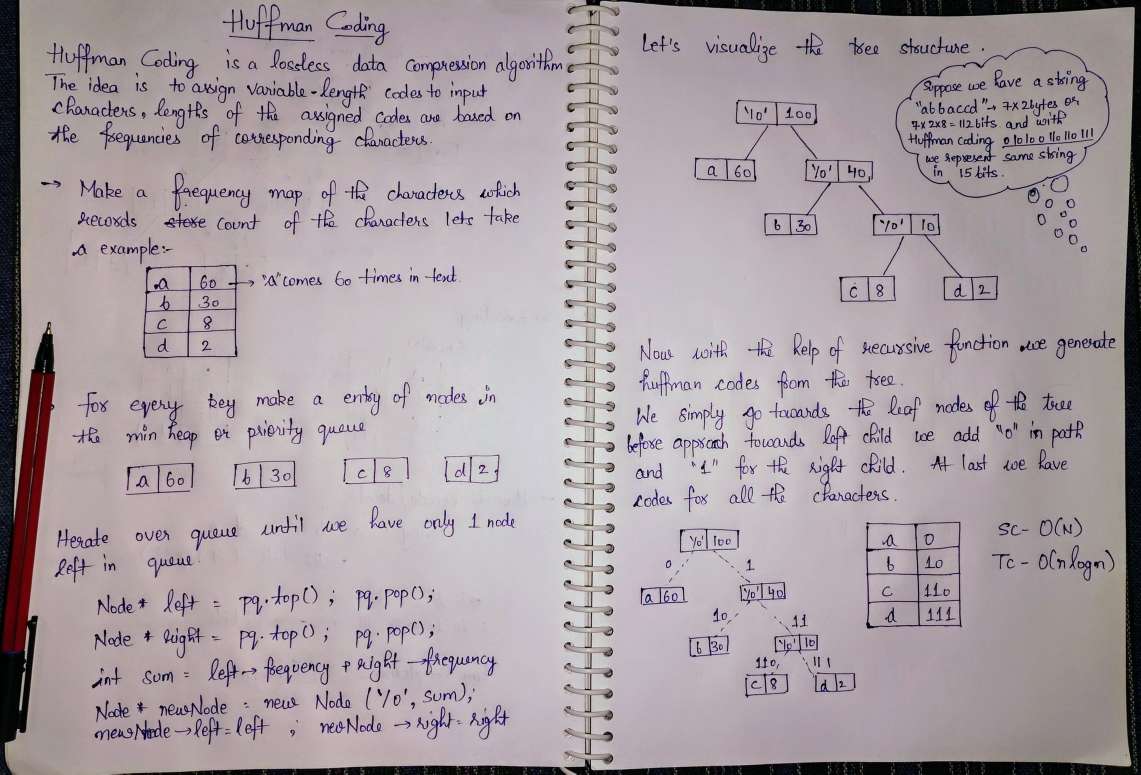 Huffman Coding
Huffman Coding is a lossless data compression algorithm
The idea is to assign variable-length codes to input
characters, lengths of the assigned codes are based on
the frequencies of corresponding characters.
→ Make a frequency map of the characters which
records store count of the characters lets take
a example:-
a 60 → "a" comes 60 times in text.
b 30
c 8
d 2
for every key make a entry of nodes in
the min heap or priority queue
a 60 b 30 c 8 d 2
Iterate over queue until we have only 1 node
left in queue.
Node* left = pq.top(); pq.pop();
Node* right = pq.top(); pq.pop();
int sum = left→frequency + right→frequency
Node* newNode = new Node ('\0', sum);
newNode→left = left ; newNode→right = right
Let's visualize the tree structure.
Suppose we have a string
"abbaccd"→ 7x2bytes or
7x2x8 = 112 bits and with
Huffman coding 0 10 10 0 110 110 111
we represent same string
in 15 bits.
'\0' 100
a 60 '\0' 40
b 30 '\0' 10
c 8 d 2
Now with the help of recursive function we generate
huffman codes from the tree.
We simply go towards the leaf nodes of the tree
before approach towards left child we add "0" in path
and "1" for the right child. At last we have
codes for all the characters.
'\0' 100
0 1
a 60 '\0' 40
10 11
b 30 '\0' 10
110 111
c 8 d 2
a 0
b 10
c 110
d 111
SC- O(N)
TC- O(nlogn)